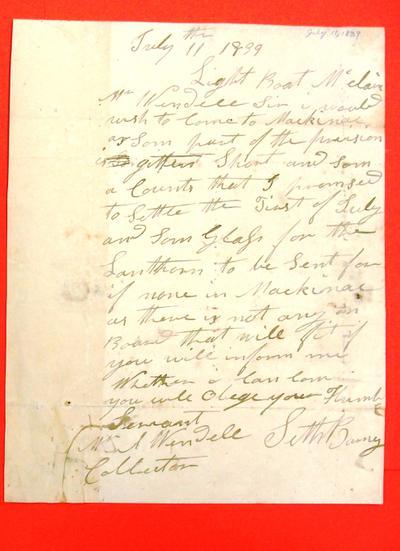 July 11, 1839
July 11th 1839
Light Boat Mclain
Mr Wendell Sir i would
wish to Come to Mackinac
as Som part of the provision
is gitten Short and Som
a Counts that I promised
to Settle the First of July
and Som Glass for the
Lanthorn to be Sent for
if none in Mackinac
as there is not any on
Board that will fit if
you will inform me
Whether i Can Com
you will Obege your Humb
Servant
Mr A Wendell Seth Barney
Collector